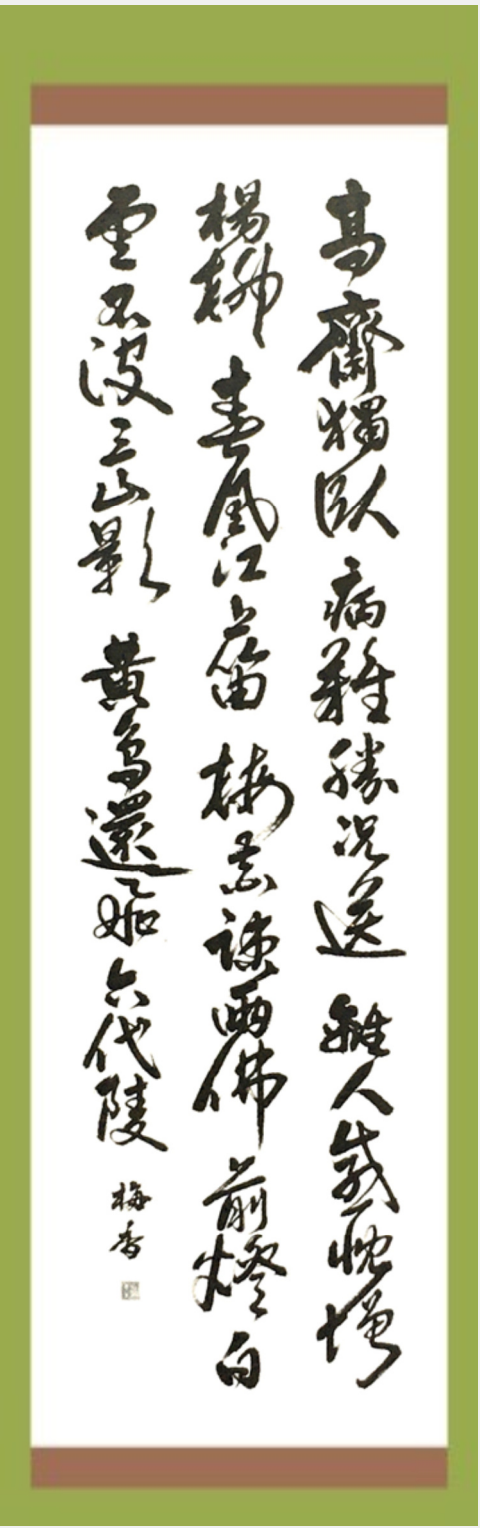 高齋獨臥病難勝況送離人感慨增
楊柳春風江上笛梅花疎雨佛前燈白
雲不三山影黄鳥還六代陵
梅香